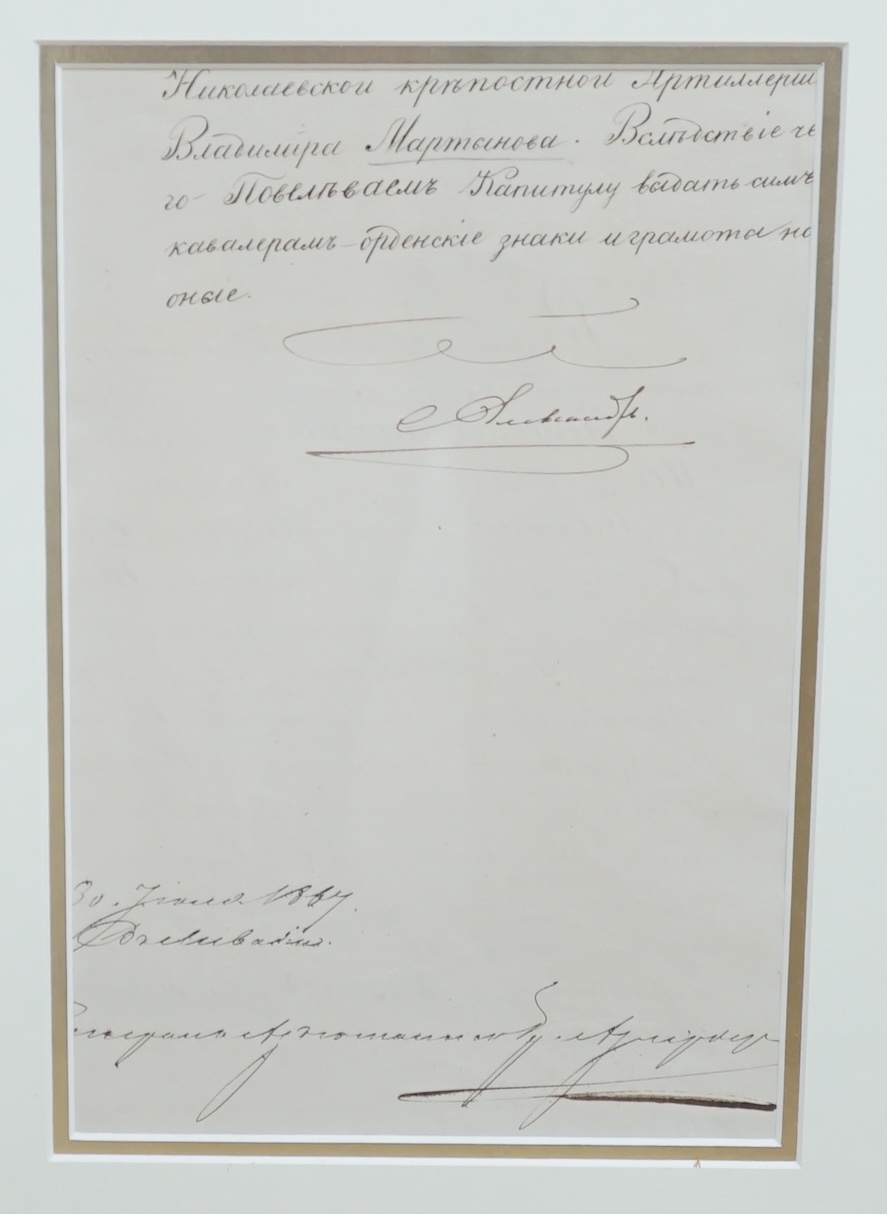 Николаевской крѣпостной Артиллеріи
Владиміра Мартынова. Вслѣдствіе че
го Повелѣваемъ Капитулу выдать симъ
кавалерамъ орденскіе знаки и грамоты на
оные.
Александръ.
30. Іюля 1867.
Въ Ливадіи.
Генералъ Адъютантъ Гр.